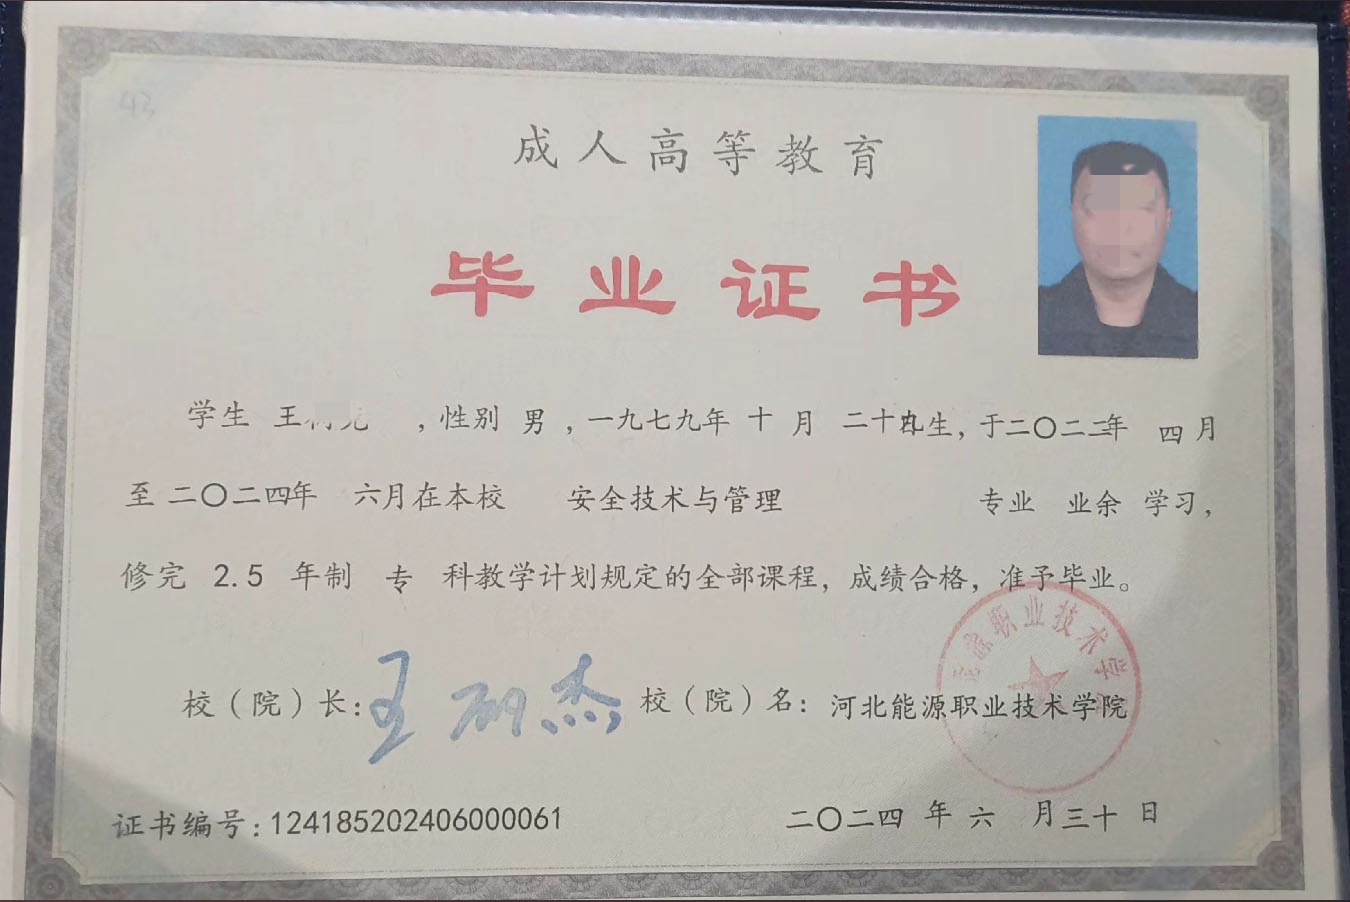 43
成人高等教育
毕业证书
学生 王 ，性别 男 ，一九七九年 十 月 二十 生，于二〇二二年 四 月
至 二〇二四年 六月在本校 安全技术与管理 专业 业余 学习，
修完 2.5 年制 专 科教学计划规定的全部课程，成绩合格，准予毕业。
校（院）长： 校（院）名：河北能源职业技术学院
源职业技术学
证书编号:124185202406000061 二〇二四 年 六 月三十 日